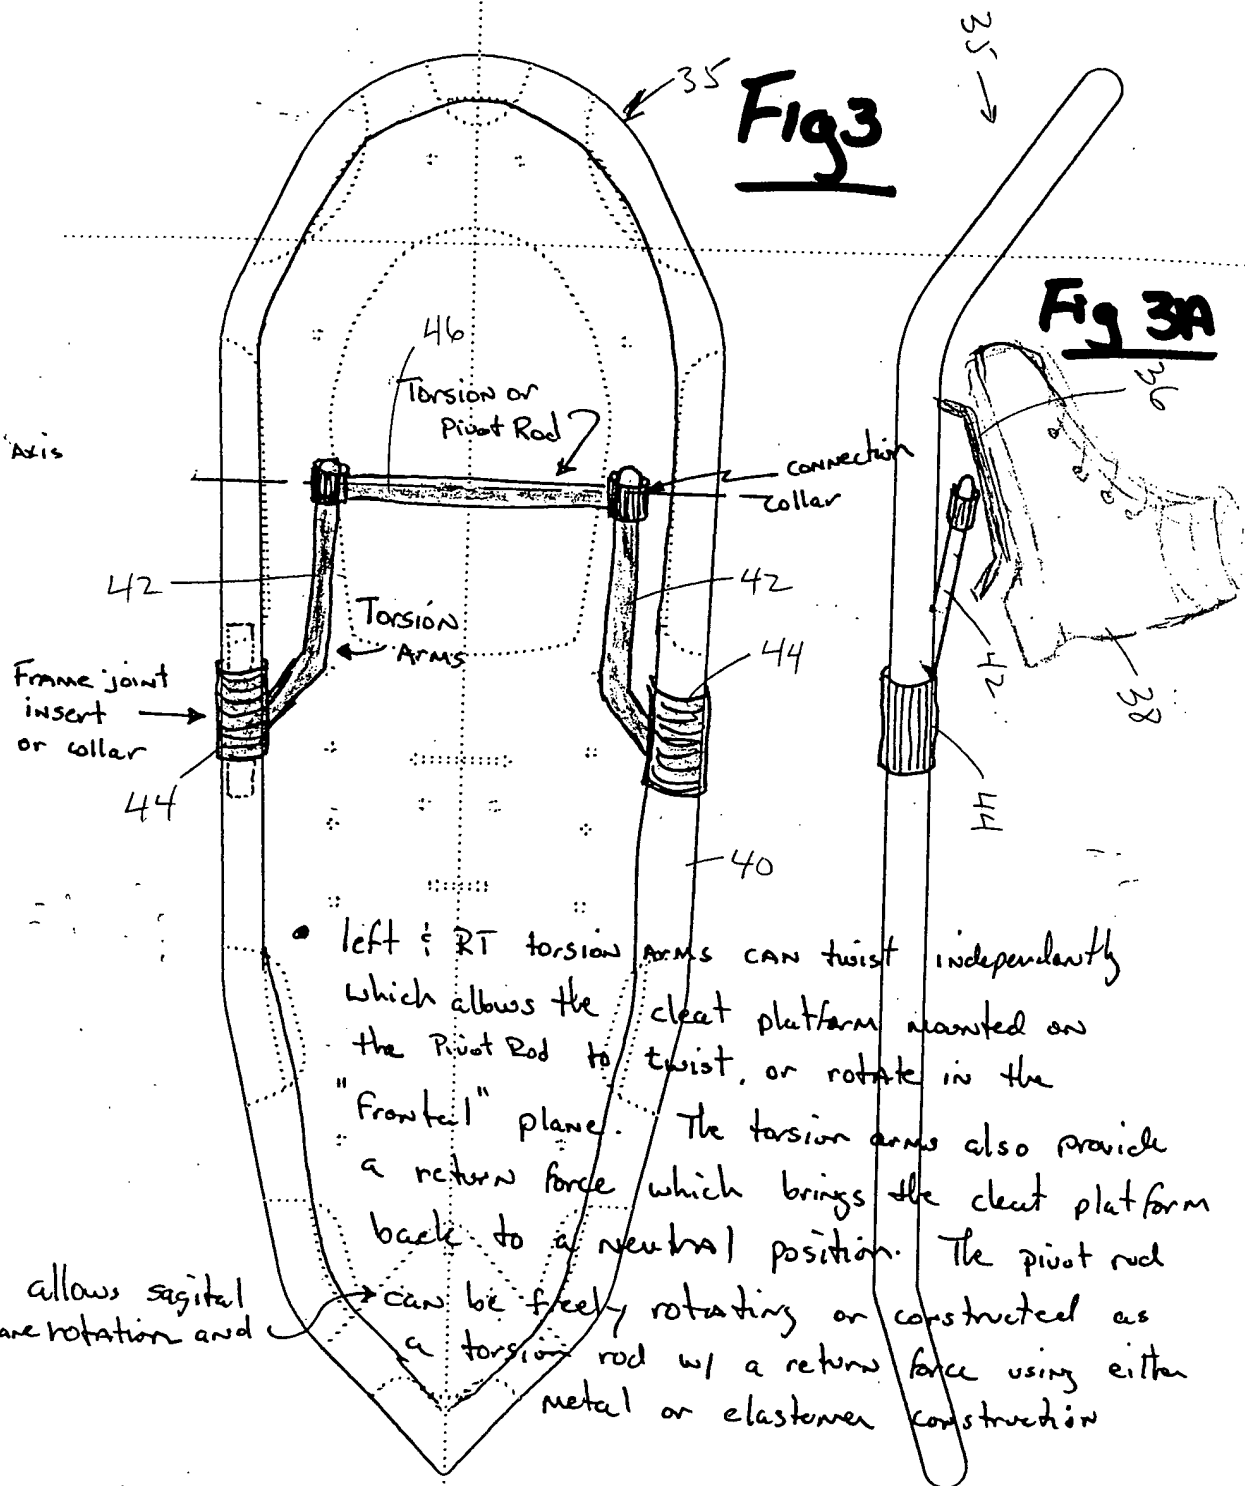 35
Fig3
35
Fig 3A
46
Torsion or
Pivot Rod
Axis
connection
collar
36
42
42
Torsion
Arms
44
Frame joint
insert
or collar
44
42
38
44
40
• left & RT torsion Arms CAN twist independantly
which allows the cleat platform mounted on
the Pivot Rod to twist, or rotate in the
"Frontal" plane. The torsion arms also provide
a return force which brings the cleat platform
back to a neutral position. The pivot rod
allows sagital
ane rotation and
can be freely rotating or constructed as
a torsion rod w/ a return force using either
metal or elastomer construction